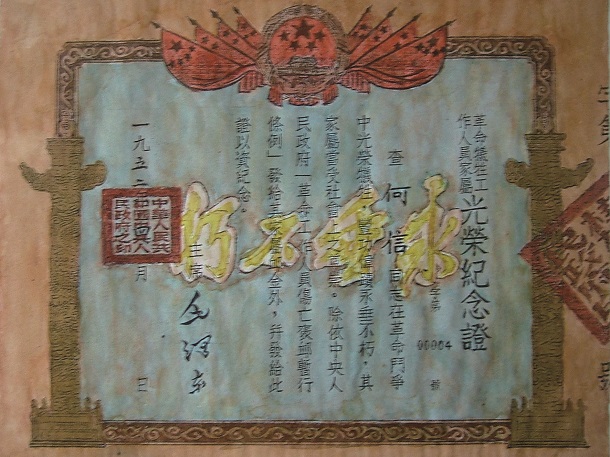 革命犧牲工
作人員家屬
光榮紀念證
字第 00004 號
查 何信 同志在革命鬥爭
中光榮犧牲,豐功偉績永垂不朽,其
家屬當受社會上之尊崇。除依中央人
民政府「革命工作人員傷亡褒卹暫行
條例」發給其家屬卹金外,并發給此
證以資紀念。
主席 毛澤東
一九五二 月 日
中華人民共
和國中央人
民政府之印
永垂不朽